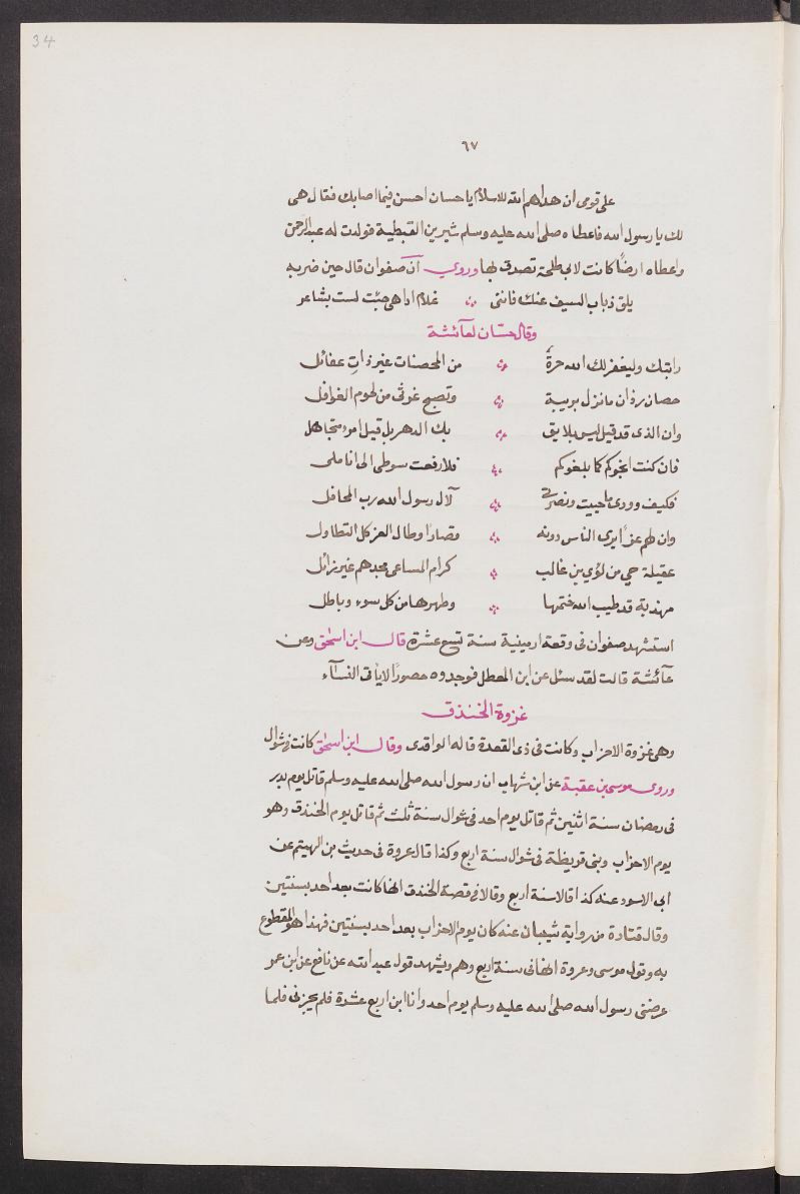 34
٦٧
على قومى ان هداهم الله للاسلام يا حسان احسن فيما اصابك فقال هى
لك يا رسول الله فاعطاه صلى الله عليه وسلم شيرين القبطية فولدت له عبد الرحمن
واعطاه ارضًا كانت لابى طلحة تصدق بها وروي ان صفوان قال حين ضربه
يلق ذباب السيف عنك فاننى غلام اذا هى جئت لست بشاعر
وقال حسّان لعآئشة
راتبك وليغفر لك الله حرة من المحصنات غير ذاتِ عفائل
حصان رزان ما نزل بريبة وتصبح غرثى من لحوم الغوافل
وان الذى قد قيل ليس بلايق بك الدهر بل قيل امرء متجاهل
فان كنت اهجوكم كما بلغوكم فلا رفعت سوطى الى اناملى
فكيف وودى ما حييت ونصرتى لآل رسول الله رب المحافل
وان لهم عزًا يرى الناس دونه وقصارا وطال العز كل التطاول
عقيلة حي من لؤي بن غالب كرام المساعى مجدهم غير زائل
مهذبة قد طيب الله ختمها وطهرها من كل سوء وباطل
استشهد صفوان فى وقعة ارمينية سنة تسع عشرة قال ابن اسحٰق وعن
عآئشة قالت لقد سئل عن ابن المعطل فوجدوه حصورًا لا ياتى النسآء
غزوة الخندق
وهى غزوة الاحزاب وكانت فى ذى القعدة قاله الواقدى وقال ابن اسحٰق كانت فى شوال
وروى موسى بن عقبة عن ابن شهاب ان رسول الله صلى الله عليه وسلم قاتل يوم بدر
فى رمضان سنة اثنين ثم قاتل يوم احد فى شوال سنة ثلث ثم قاتل يوم الخندق وهو
يوم الاحزاب وبنى قريظة فى شوال سنة اربع وكذا قال عروة فى حديث بن الهيتم عن
ابى الاسود عنه كذا قالا سنة اربع وقالا فى قصة الخندق انها كانت بعد احد بسنتين
وقال قتادة من رواية شيبان عنه كان يوم الاحزاب بعد احد بسنتين فهذا هو المقطوع
به وقول موسى وعروة انها فى سنة اربع وهم ويشهد قول عبد الله عن نافع عن ابن عمر
عرضنى رسول الله صلى الله عليه وسلم يوم احد وانا ابن اربع عشرة فلم يجزنى فلما